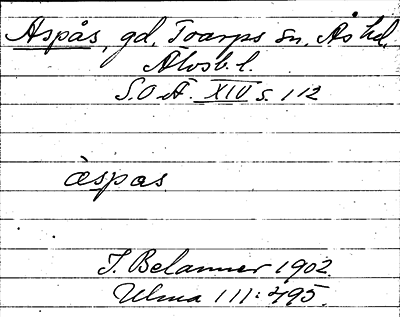 Aspås, gd, Toarps sn, Ås hd,
Älvsb. l.
S.O.Ä. XIV s. 112
àspas
J. Belanner 1902.
Ulma 111:495.